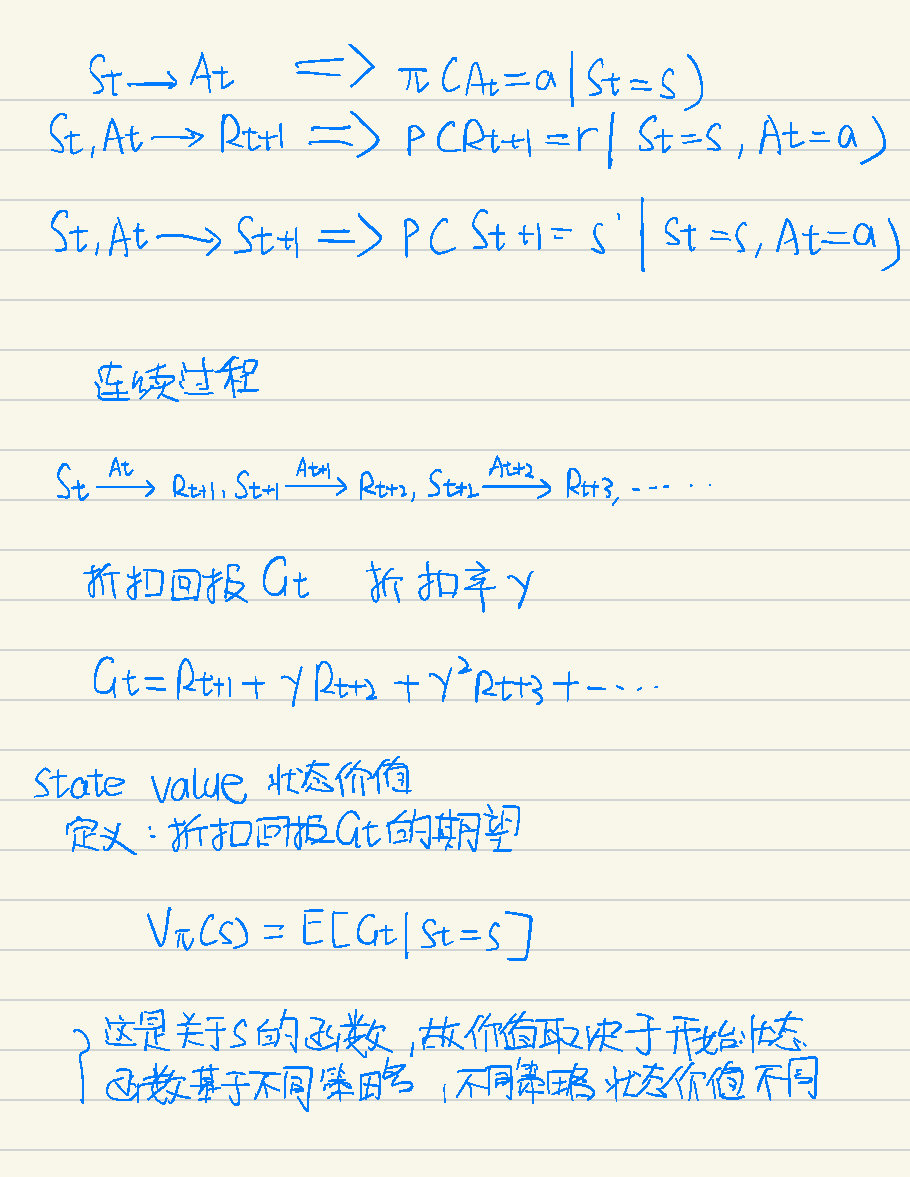 St → At ⇒ π(At=a|St=s)
St,At → Rt+1 ⇒ P(Rt+1=r|St=s,At=a)
St,At → St+1 ⇒ P(St+1=s'|St=s,At=a)
连续过程
St —At→ Rt+1,St+1 —At+1→ Rt+2,St+2 —At+2→ Rt+3,……
折扣回报Gt 折扣率γ
Gt=Rt+1+γRt+2+γ²Rt+3+……
State value 状态价值
定义:折扣回报Gt的期望
Vπ(s)=E[Gt|St=s]
这是关于s的函数,故价值取决于开始状态
函数基于不同策略,不同策略状态价值不同